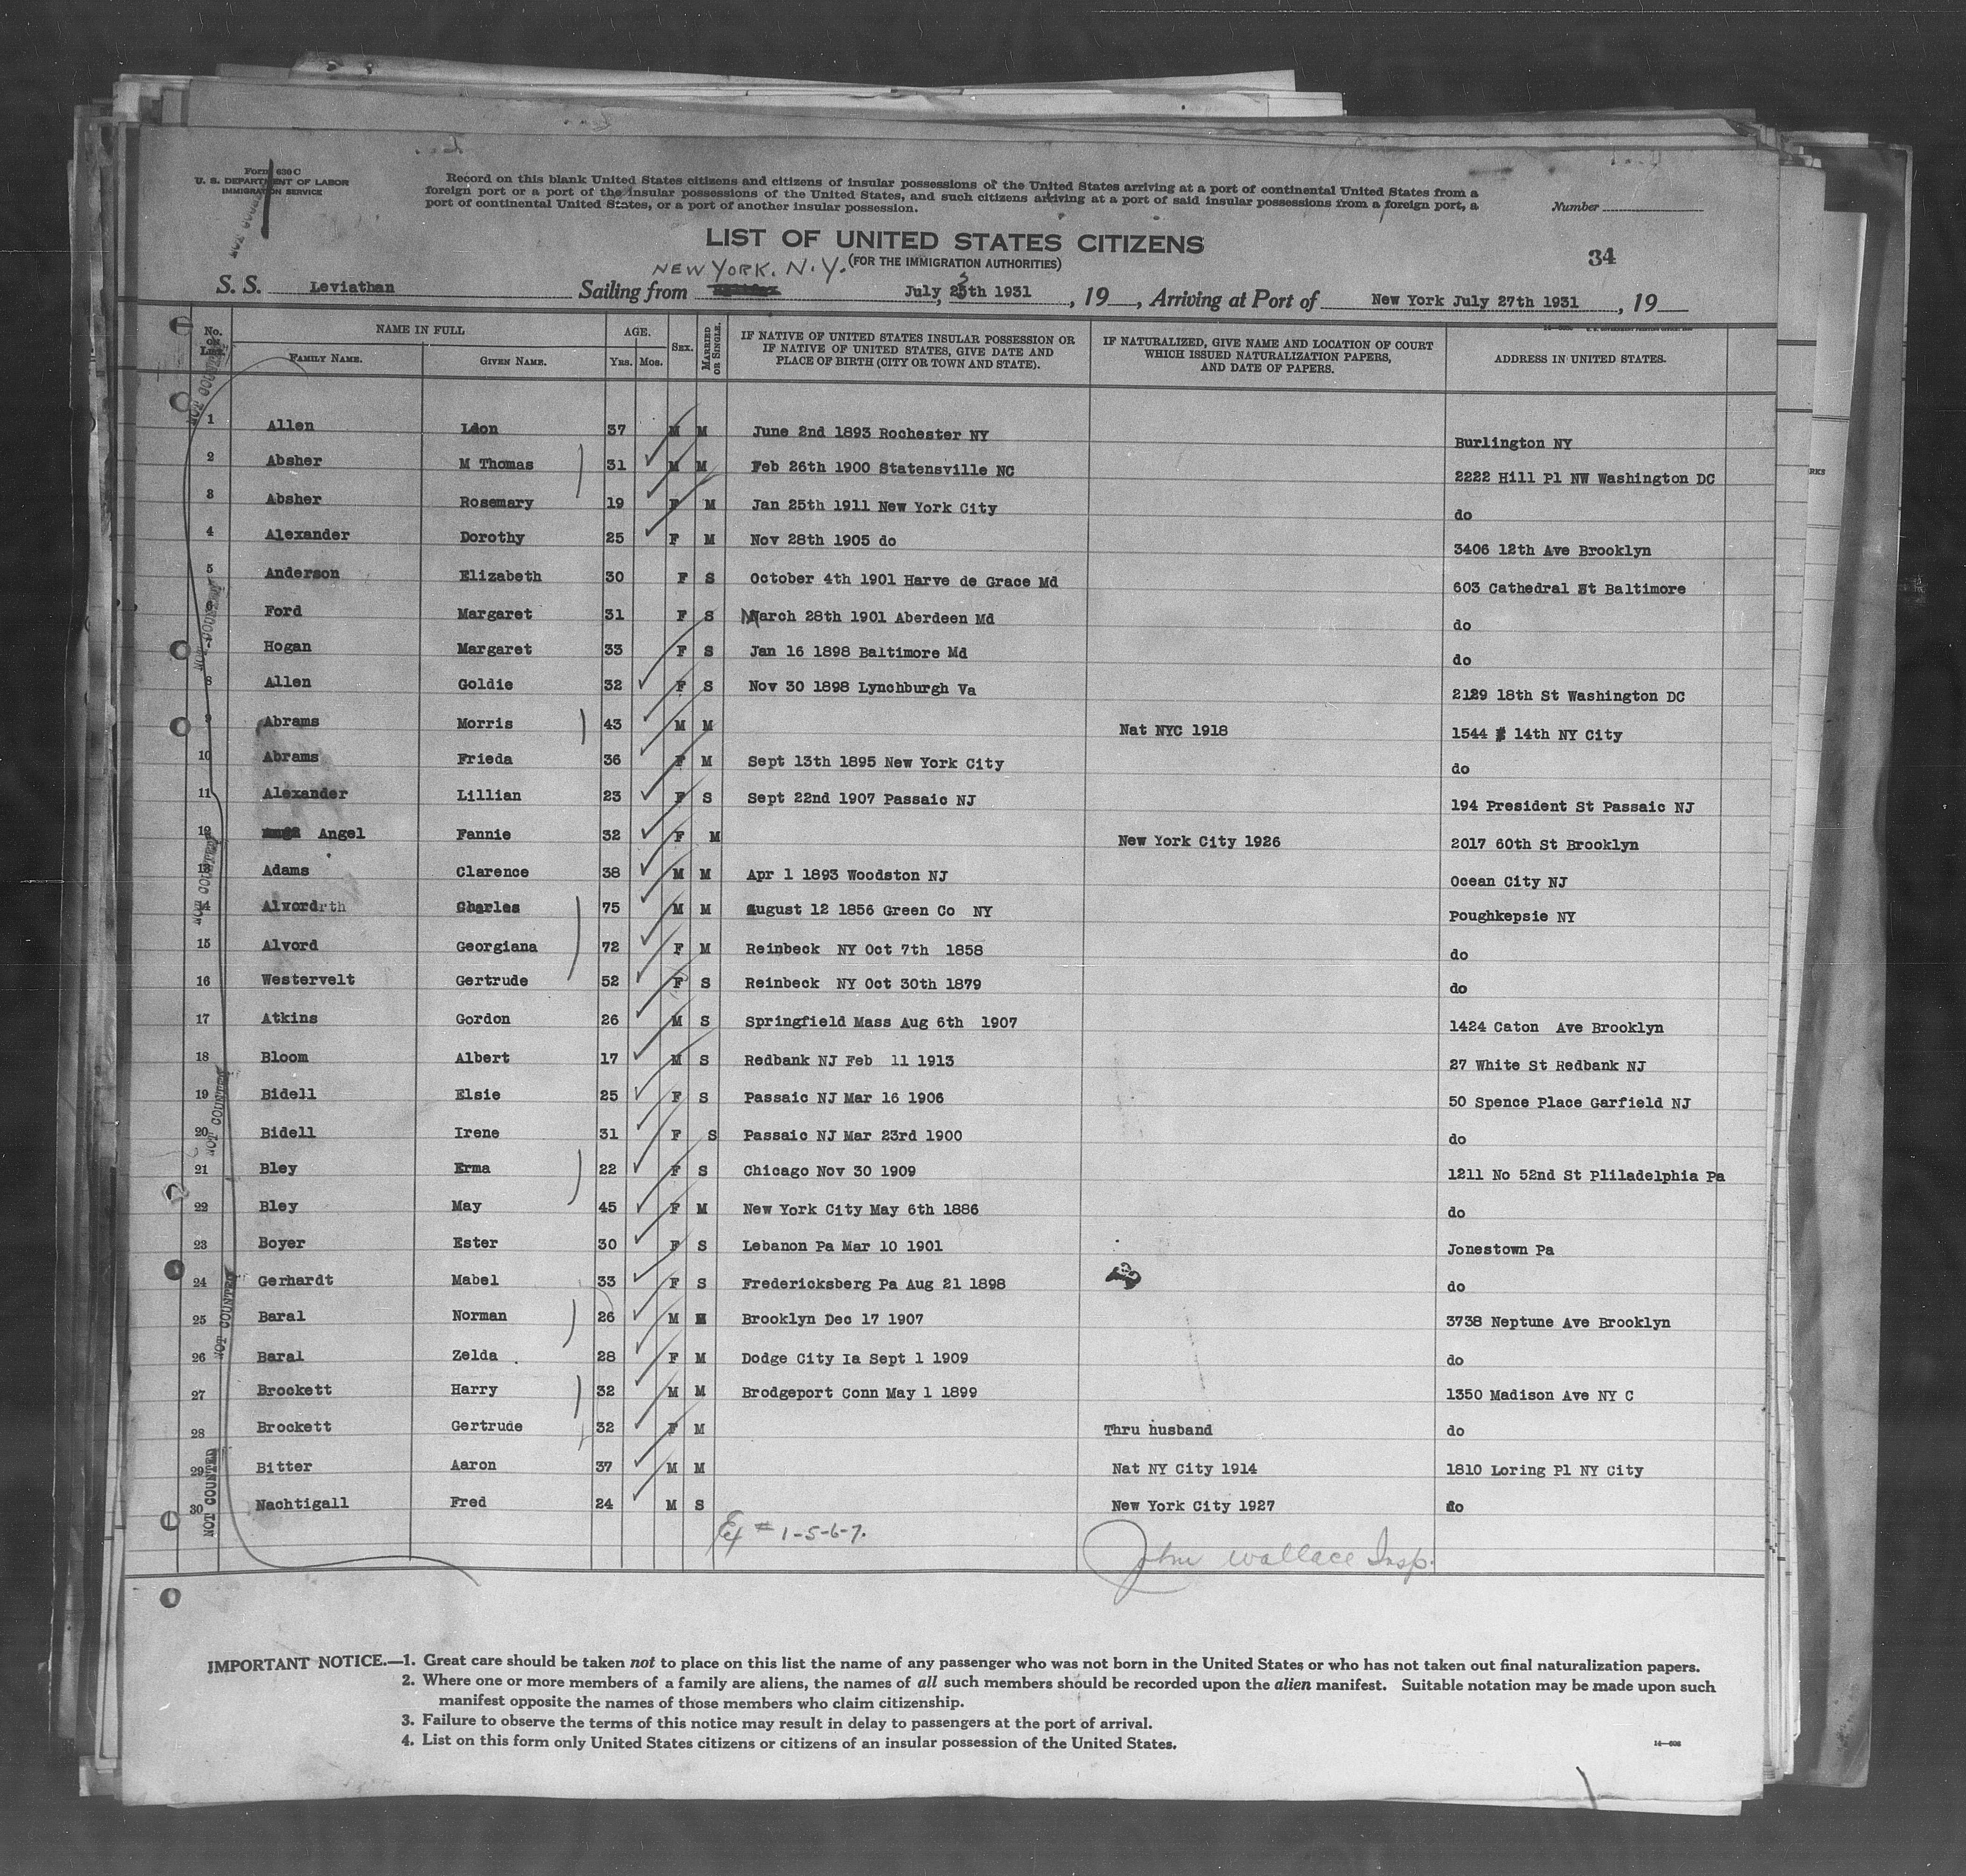 Form 630 C
U. S. DEPARTMENT OF LABOR
IMMIGRATION SERVICE
Record on this blank United States citizens and citizens of insular possessions of the United States arriving at a port of continental United States from a
foreign port or a port of the insular possessions of the United States, and such citizens arriving at a port of said insular possessions from a foreign port, a
port of continental United States, or a port of another insular possession.
Number
LIST OF UNITED STATES CITIZENS
(FOR THE IMMIGRATION AUTHORITIES)
34
NEW YORK. N.Y.
S. S. Leviathan Sailing from July 25th 1931, 19, Arriving at Port of New York July 27th 1931, 19
No. on List. NAME IN FULL AGE. SEX. MARRIED OR SINGLE. IF NATIVE OF UNITED STATES INSULAR POSSESSION OR IF NATIVE OF UNITED STATES, GIVE DATE AND PLACE OF BIRTH (CITY OR TOWN AND STATE). IF NATURALIZED, GIVE NAME AND LOCATION OF COURT WHICH ISSUED NATURALIZATION PAPERS, AND DATE OF PAPERS. ADDRESS IN UNITED STATES.
FAMILY NAME. GIVEN NAME. Yrs. Mos.
1 Allen Leon 37 M M June 2nd 1893 Rochester NY Burlington NY
2 Absher M Thomas 31 M M Feb 26th 1900 Statensville NC 2222 Hill Pl NW Washington DC
3 Absher Rosemary 19 F M Jan 25th 1911 New York City do
4 Alexander Dorothy 25 F M Nov 28th 1905 do 3406 12th Ave Brooklyn
5 Anderson Elizabeth 30 F S October 4th 1901 Harve de Grace Md 603 Cathedral St Baltimore
6 Ford Margaret 31 F S March 28th 1901 Aberdeen Md do
7 Hogan Margaret 33 F S Jan 16 1898 Baltimore Md do
8 Allen Goldie 32 F S Nov 30 1898 Lynchburgh Va 2129 18th St Washington DC
9 Abrams Morris 43 M M Nat NYC 1918 1544 14th NY City
10 Abrams Frieda 36 F M Sept 13th 1895 New York City do
11 Alexander Lillian 23 F S Sept 22nd 1907 Passaic NJ 194 President St Passaic NJ
12 Angel Fannie 32 F M New York City 1926 2017 60th St Brooklyn
13 Adams Clarence 38 M M Apr 1 1893 Woodston NJ Ocean City NJ
14 Alvordrth Charles 75 M M August 12 1856 Green Co NY Poughkepsie NY
15 Alvord Georgiana 72 F M Reinbeck NY Oct 7th 1858 do
16 Westervelt Gertrude 52 F S Reinbeck NY Oct 30th 1879 do
17 Atkins Gordon 26 M S Springfield Mass Aug 6th 1907 1424 Caton Ave Brooklyn
18 Bloom Albert 17 M S Redbank NJ Feb 11 1913 27 White St Redbank NJ
19 Bidell Elsie 25 F S Passaic NJ Mar 16 1906 50 Spence Place Garfield NJ
20 Bidell Irene 31 F S Passaic NJ Mar 23rd 1900 do
21 Bley Erma 22 F S Chicago Nov 30 1909 1211 No 52nd St Pliladelphia Pa
22 Bley May 45 F M New York City May 6th 1886 do
23 Boyer Ester 30 F S Lebanon Pa Mar 10 1901 Jonestown Pa
24 Gerhardt Mabel 33 F S Fredericksberg Pa Aug 21 1898 do
25 Baral Norman 26 M M Brooklyn Dec 17 1907 3738 Neptune Ave Brooklyn
26 Baral Zelda 28 F M Dodge City Ia Sept 1 1909 do
27 Brockett Harry 32 M M Brodgeport Conn May 1 1899 1350 Madison Ave NY C
28 Brockett Gertrude 32 F M Thru husband do
29 Bitter Aaron 37 M M Nat NY City 1914 1810 Loring Pl NY City
30 Nachtigall Fred 24 M S New York City 1927 do
Ex # 1-5-6-7.
John Wallace Insp.
NOT COUNTED
NOT COUNTED
NOT COUNTED
NOT COUNTED
NOT COUNTED
NOT COUNTED
IMPORTANT NOTICE.—1. Great care should be taken not to place on this list the name of any passenger who was not born in the United States or who has not taken out final naturalization papers.
2. Where one or more members of a family are aliens, the names of all such members should be recorded upon the alien manifest. Suitable notation may be made upon such
manifest opposite the names of those members who claim citizenship.
3. Failure to observe the terms of this notice may result in delay to passengers at the port of arrival.
4. List on this form only United States citizens or citizens of an insular possession of the United States.
14—608